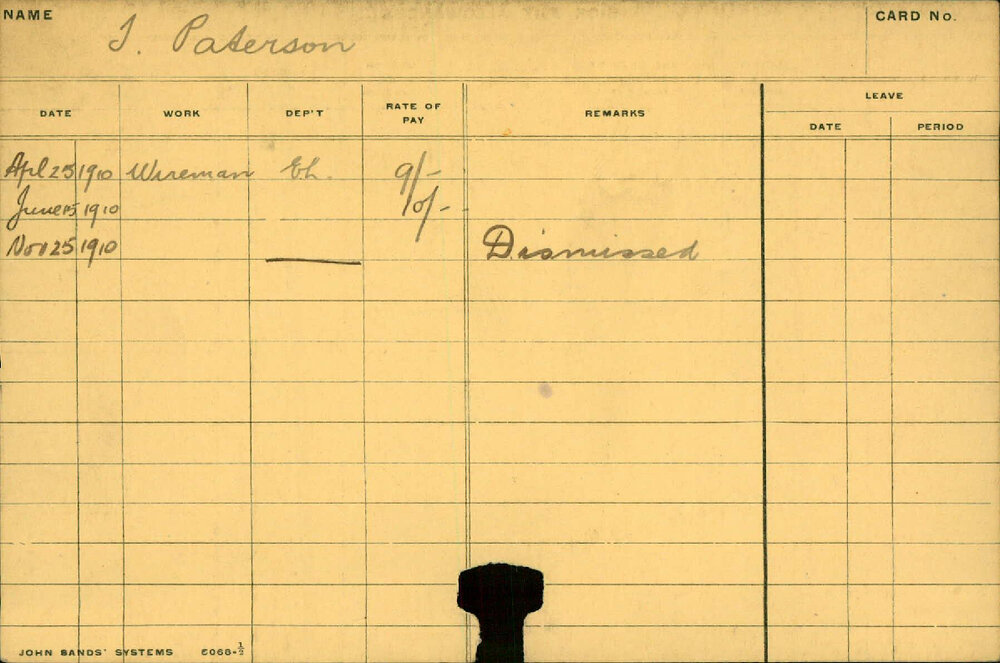 NAME
T. Paterson
CARD No.
DATE WORK DEP'T RATE OF PAY REMARKS LEAVE
DATE PERIOD
Apl 25 1910 Wireman Eh. 9/-
June 15 1910 10/-
Nov 25 1910 Dismissed
JOHN SANDS' SYSTEMS 6068-½